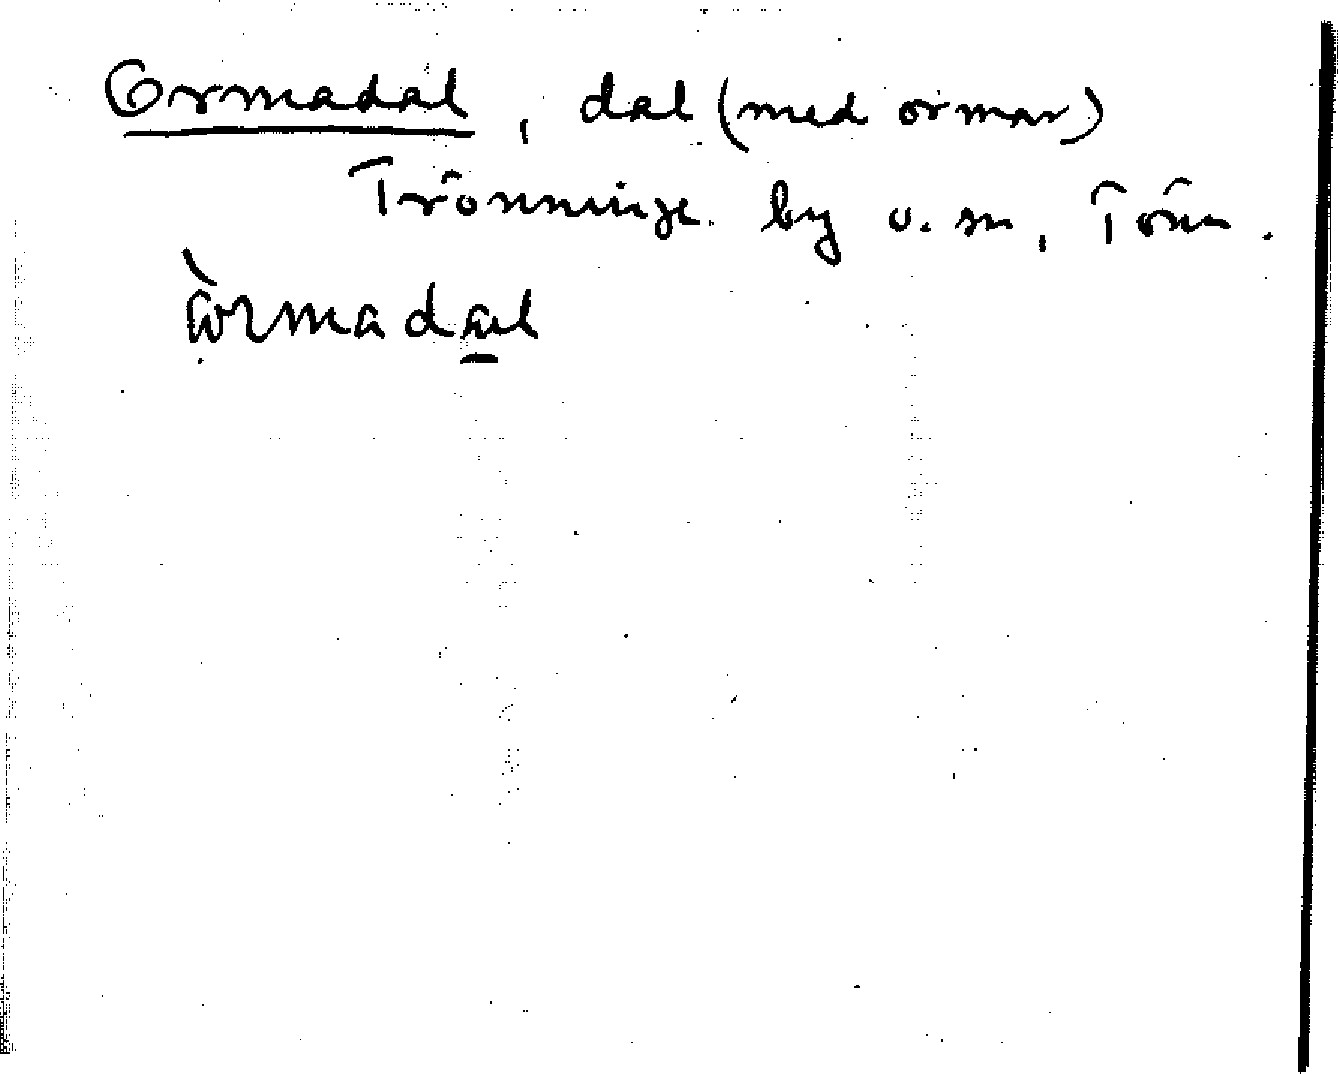 Ormadal, dal (med ormar)
Trönninge by o. sn, Tönn.
òrmadal